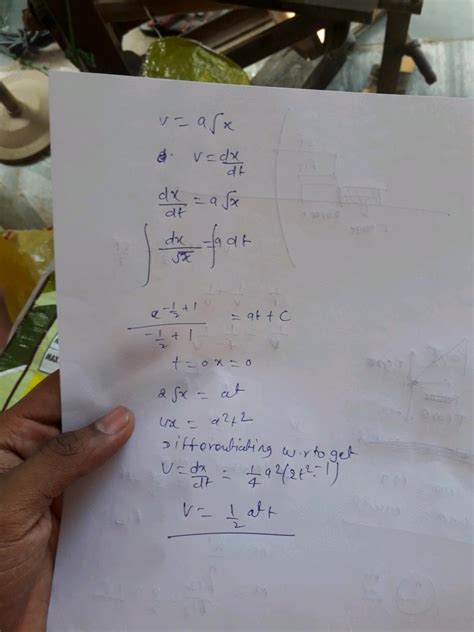 v = a√x
v = dx/dt
dx/dt = a√x
∫ dx/√x = ∫ a dt
x^(-1/2+1) / (-1/2+1) = at + C
t = 0 x = 0
2√x = at
4x = a²t²
Differentiating w.r to get
V = dx/dt = 1/4 a²(2t²⁻¹)
V = 1/2 a²t